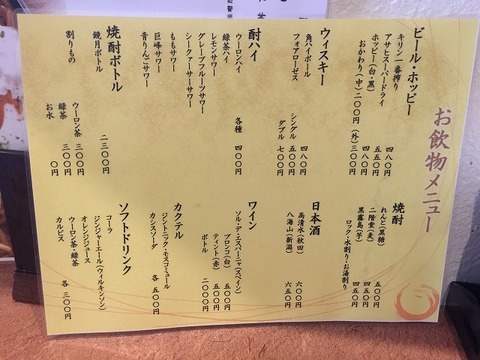 お飲物メニュー
ビール・ホッピー
キリン一番搾り 四八〇円
アサヒスーパードライ 五五〇円
ホッピー(白・黒) 四八〇円
おかわり(中)二〇〇円 (外)三〇〇円
ウィスキー
角ハイボール 四八〇円
フォアローゼス シングル 五〇〇円
ダブル 七〇〇円
酎ハイ
ウーロンハイ
緑茶ハイ
レモンサワー
グレープフルーツサワー
シークァーサーサワー
ももサワー
巨峰サワー
青りんごサワー
各種 四〇〇円
焼酎ボトル
鏡月ボトル 二三〇〇円
割りもの ウーロン茶 三〇〇円
緑茶 三〇〇円
お水 〇円
焼酎
れんと(黒糖) 五〇〇円
二階堂(麦) 四五〇円
黒霧島(芋) 四五〇円
ロック・水割り・お湯割り
日本酒
高清水(秋田) 六〇〇円
八海山(新潟) 六五〇円
ワイン
ソル・デ・エスパーニャ(スペイン)
ブランコ(白) 五〇〇円
ティント(赤) 五〇〇円
ボトル 二五〇〇円
カクテル
ジントニック・モスコミュール
カシスソーダ 各 五〇〇円
ソフトドリンク
コーラ
ジンジャーエール(ウィルキンソン)
オレンジジュース
ウーロン茶・緑茶
カルピス 各 三〇〇円